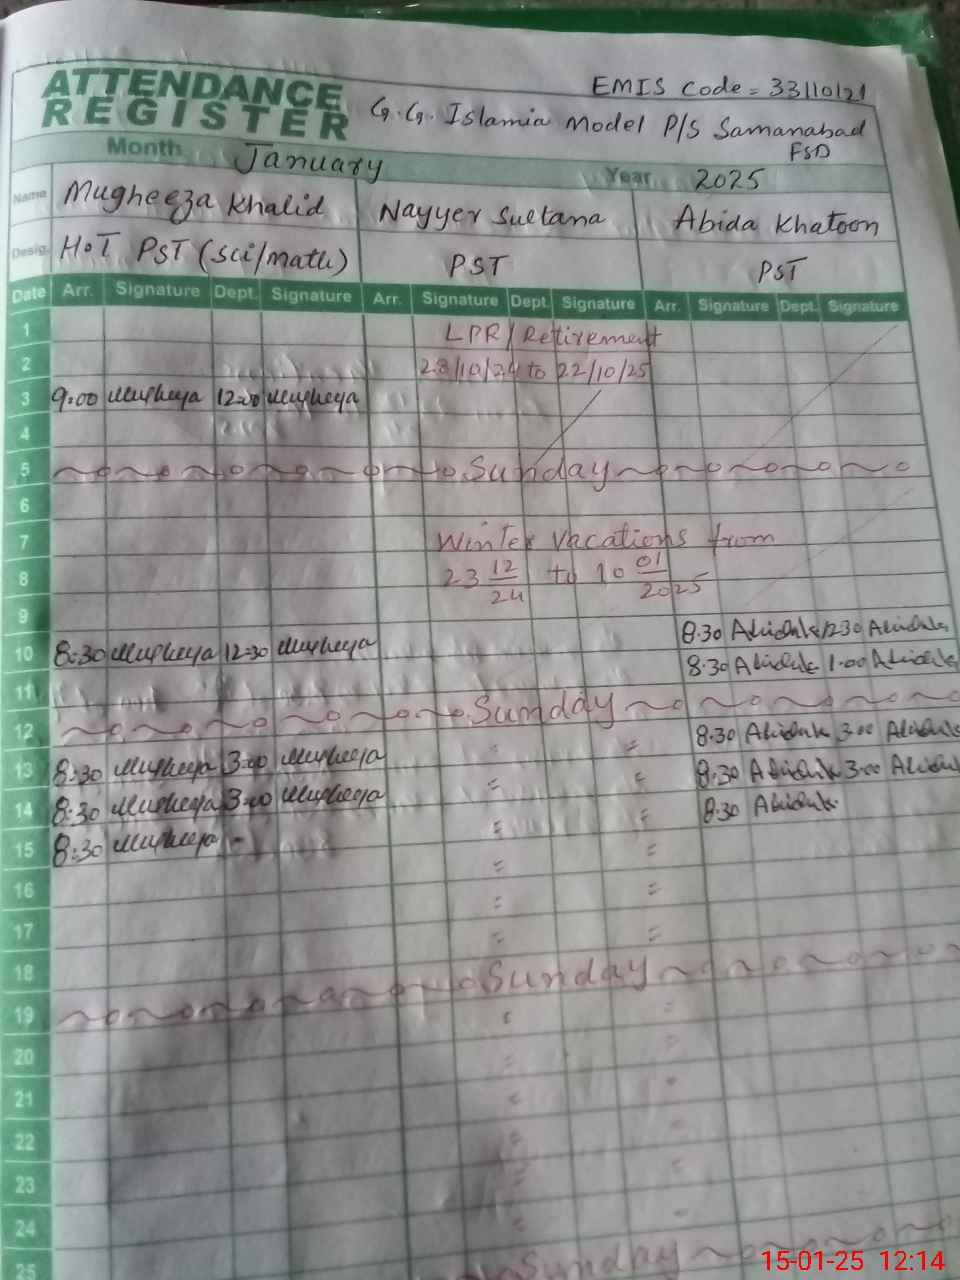 EMIS Code = 33110121
ATTENDANCE REGISTER
G.G. Islamia Model P/S Samanabad
FSD
Month January Year 2025
Name Mugheeza Khalid Nayyer Sultana Abida Khatoon
Desig. HOT PST (Sci/math) PST PST
Date Arr. Signature Dept. Signature Arr. Signature Dept. Signature Arr. Signature Dept. Signature
1 LPR/Retirement
2 23/10/24 to 22/10/25
3 9:00 12:00
4
5 Sunday
6
7 Winter Vacations from
8 23 12/24 to 10 01/2025
9
10 8:30 12:30 8:30 12:30
11 8:30 1:00
12 Sunday
13 8:30 3:00 8:30 3:00
14 8:30 3:00 8:30 3:00
15 8:30 - 8:30
16
17
18
19 Sunday
20
21
22
23
24
25
Sunday
15-01-25 12:14